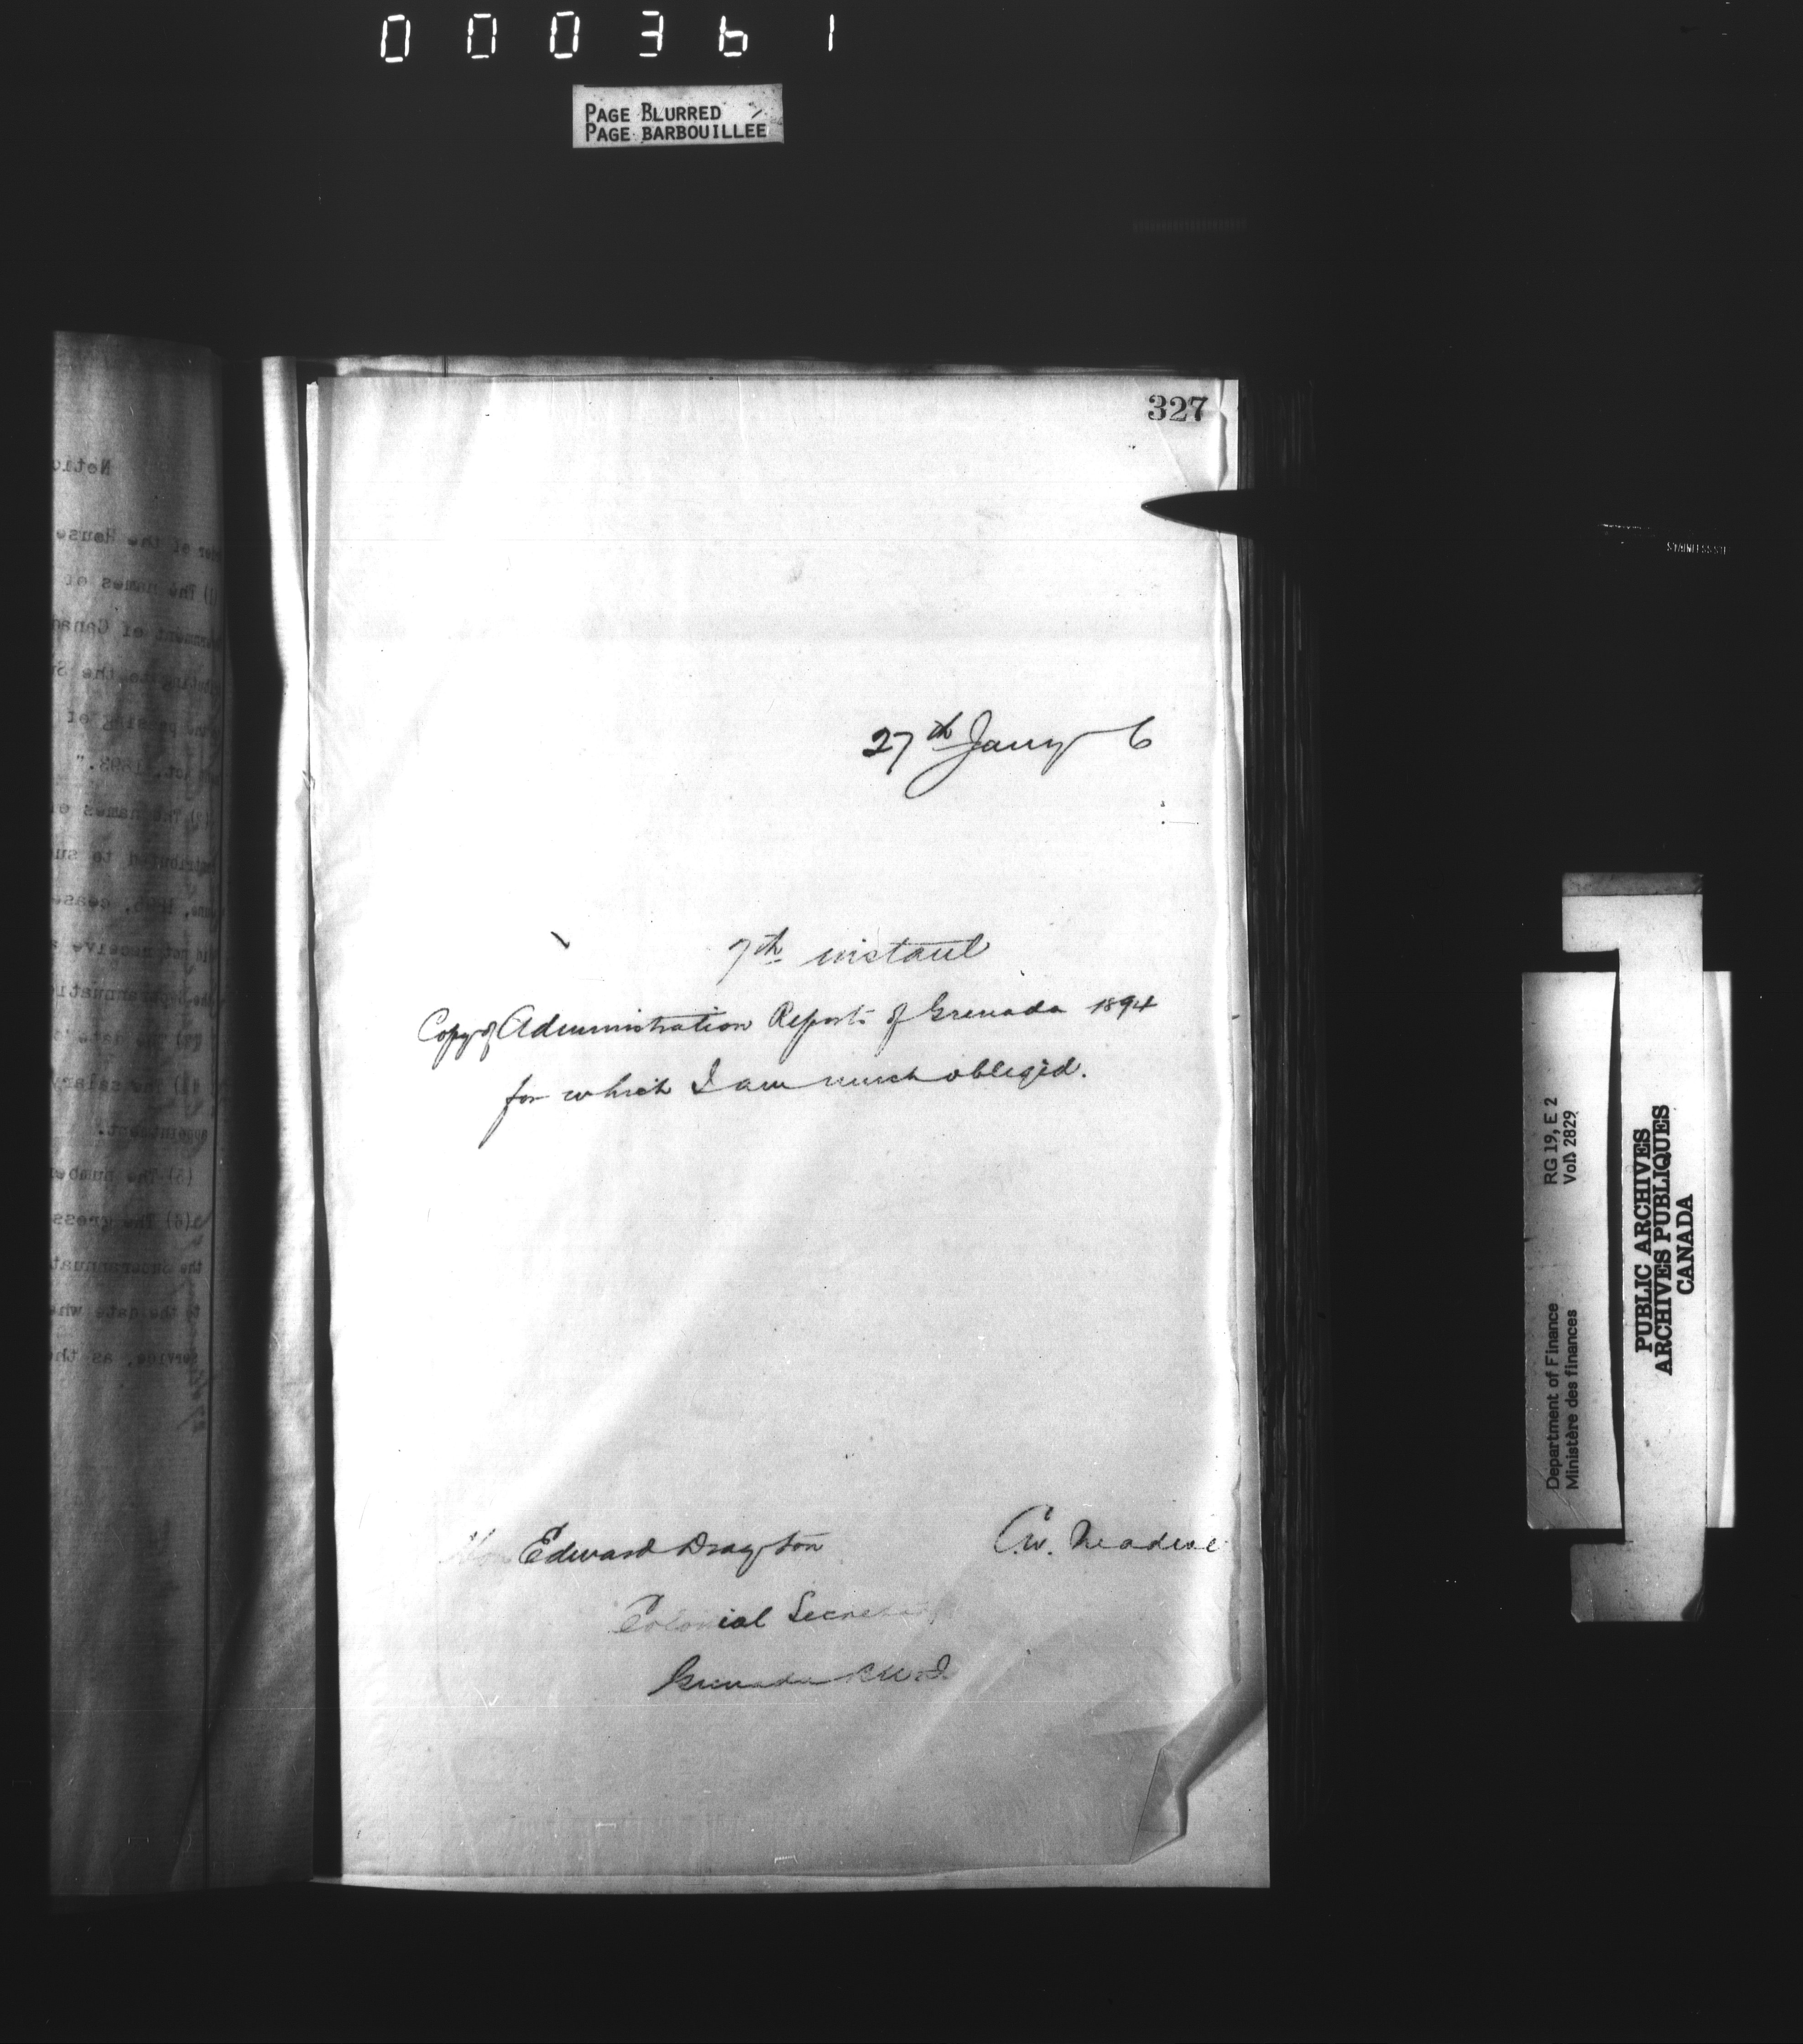 000361
PAGE BLURRED
PAGE BARBOUILLEE
327
27th Jany 6
7th instant
Copy of Administration Reports of Grenada 1894
for which I am much obliged.
Hon Edward Drayton
C.W. Treadwe
Colonial Secretary
Grenada B.W.I.
Notic
der of the House
) The names of
ernment of Canad
the S
passing of
act, 1893."
(2) The names of
ntributed to su
, cease
not receive a
the Superannuati
The date o
4) The salary
appointment.
(5) The number
(6) The gross
the Superannuat
to the date whe
service, as the
RG 19, E 2
Vol. 2829
Department of Finance
Ministère des finances
PUBLIC ARCHIVES
ARCHIVES PUBLIQUES
CANADA